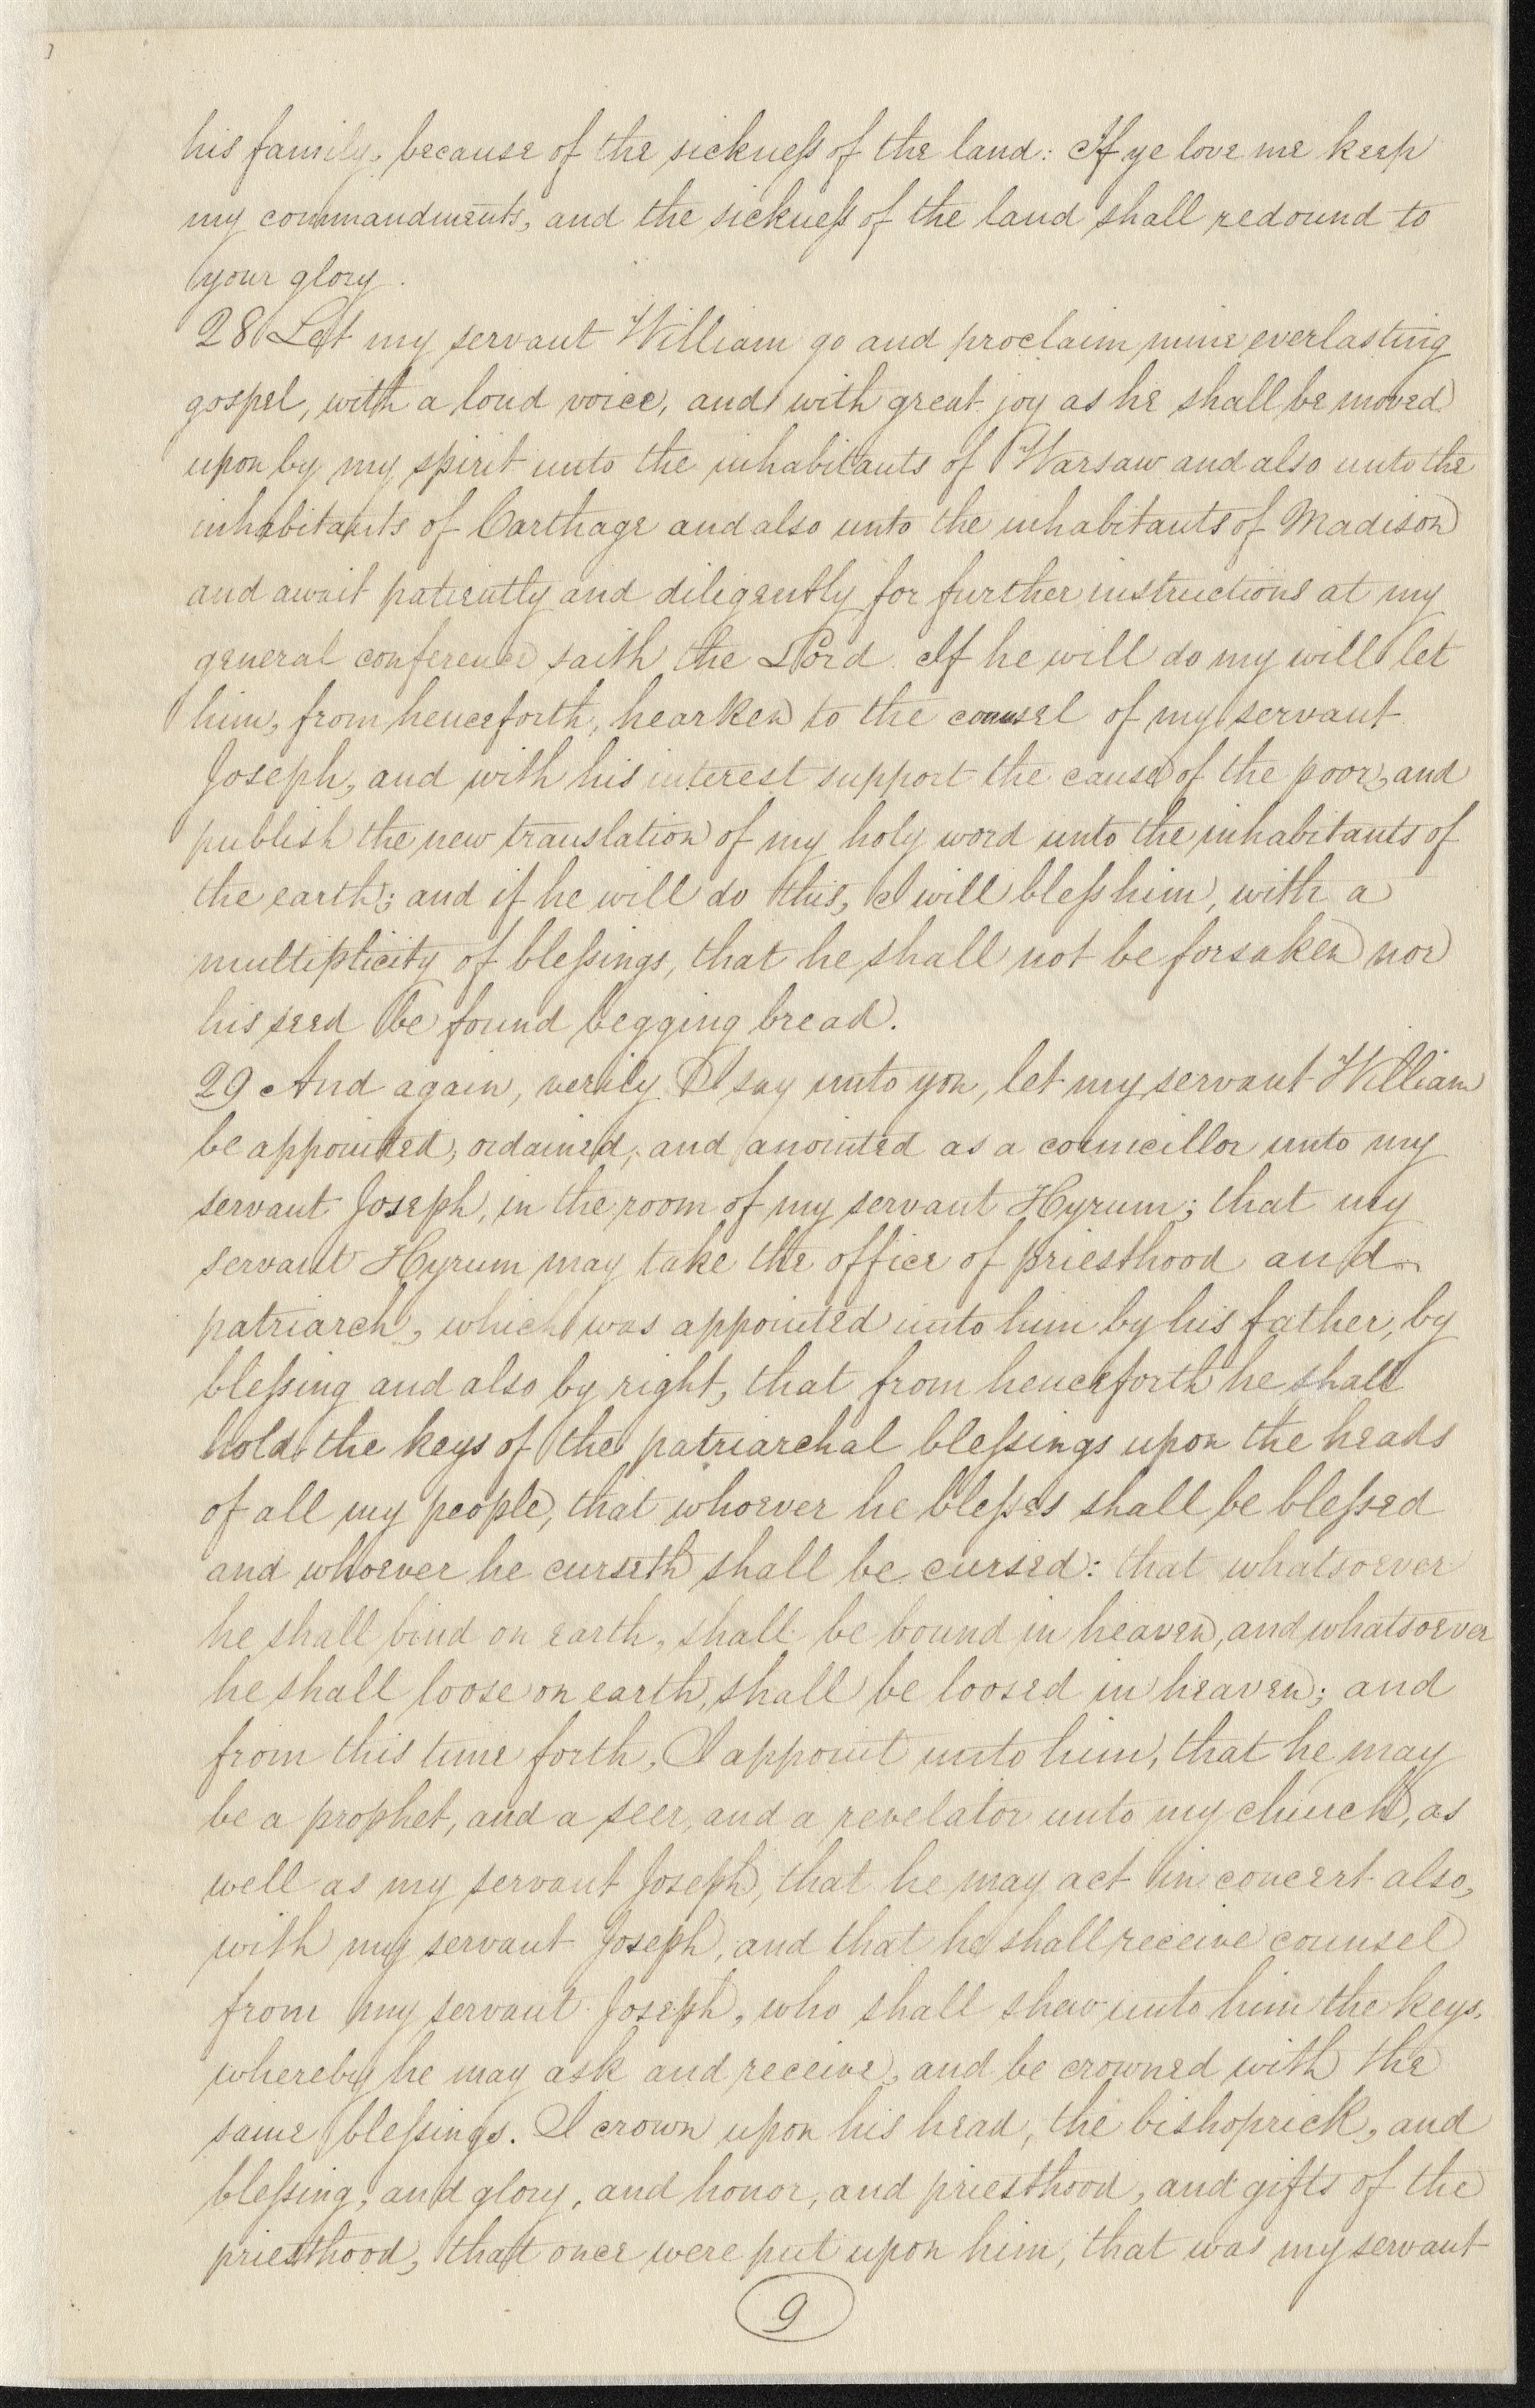 his family, because of the sickness of the land: If ye love me keep
my commandments, and the sickness of the land shall redound to
your glory.
28 Let my servant William go and proclaim mine everlasting
gospel, with a loud voice, and with great joy as he shall be moved
upon by my spirit unto the inhabitants of Warsaw and also unto the
inhabitants of Carthage and also unto the inhabitants of Madison
and await patiently and diligently for further instructions at my
general conference saith the Lord. If he will do my will let
him, from henceforth, hearken to the counsel of my servant
Joseph, and with his interest support the cause of the poor, and
publish the new translation of my holy word unto the inhabitants of
the earth; and if he will do this, I will bless him, with a
multiplicity of blessings, that he shall not be forsaken nor
his seed be found begging bread.
29 And again, verily I say unto you, let my servant William
be appointed, ordained, and anointed as a councillor unto my
servant Joseph, in the room of my servant Hyrum; that my
servant Hyrum may take the office of priesthood and
patriarch, which was appointed unto him by his father, by
blessing and also by right, that from henceforth he shall
hold the keys of the patriarchal blessings upon the heads
of all my people, that whoever he blesses shall be blessed
and whoever he curseth shall be cursed: that whatsoever
he shall bind on earth, shall be bound in heaven, and whatsoever
he shall loose on earth, shall be loosed in heaven; and
from this time forth, I appoint unto him, that he may
be a prophet, and a seer, and a revelator unto my church, as
well as my servant Joseph, that he may act in concert also,
with my servant Joseph, and that he shall receive counsel
from my servant Joseph, who shall shew unto him the keys,
whereby he may ask and receive, and be crowned with the
same blessings. I crown upon his head, the bishoprick, and
blessing, and glory, and honor, and priesthood, and gifts of the
priesthood, that once were put upon him, that was my servant
9